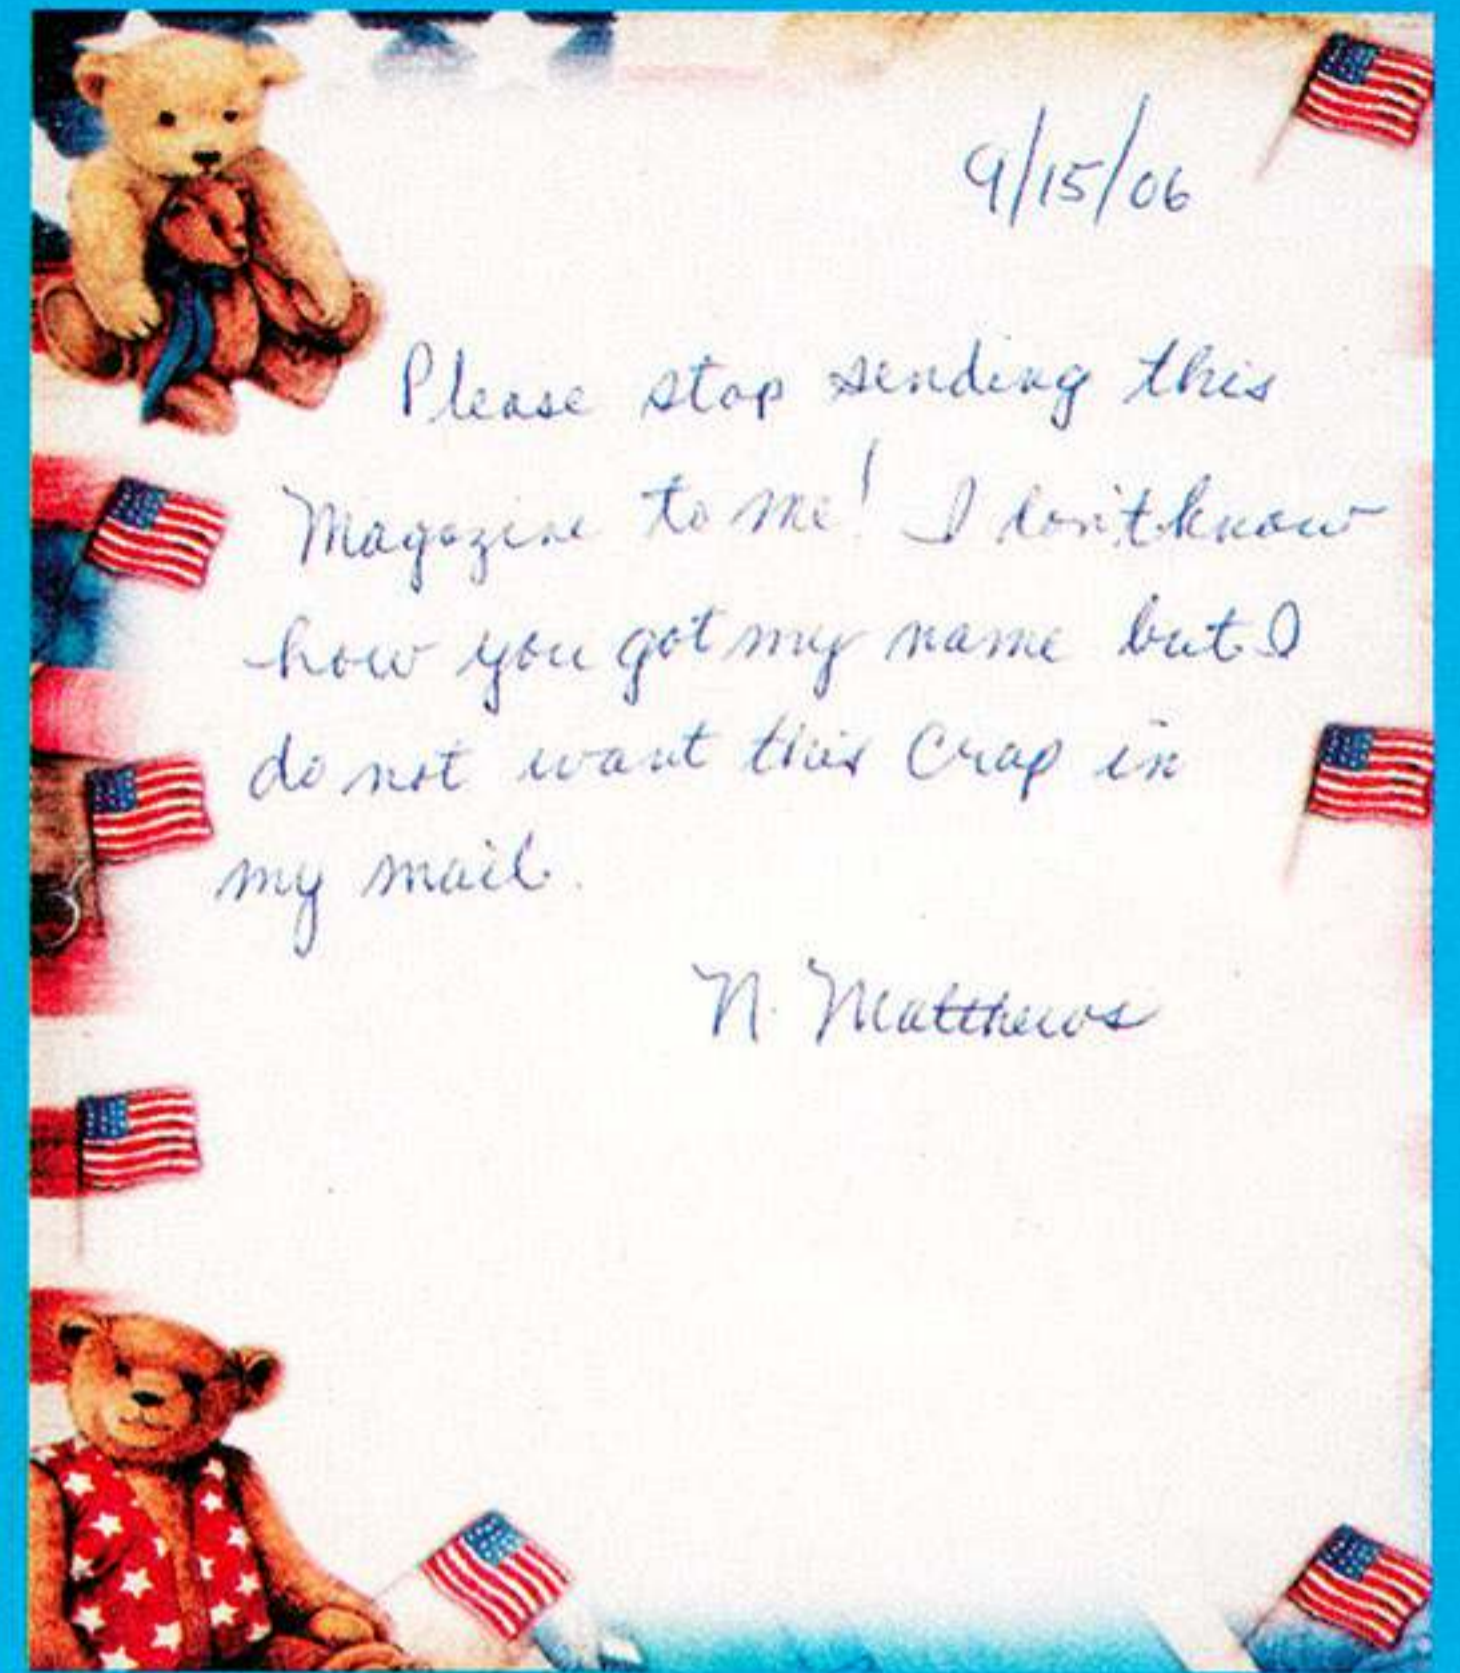 9/15/06
Please stop sending this
Magazine to me! I don't know
how you got my name but I
do not want this Crap in
my mail.
N. Matthews